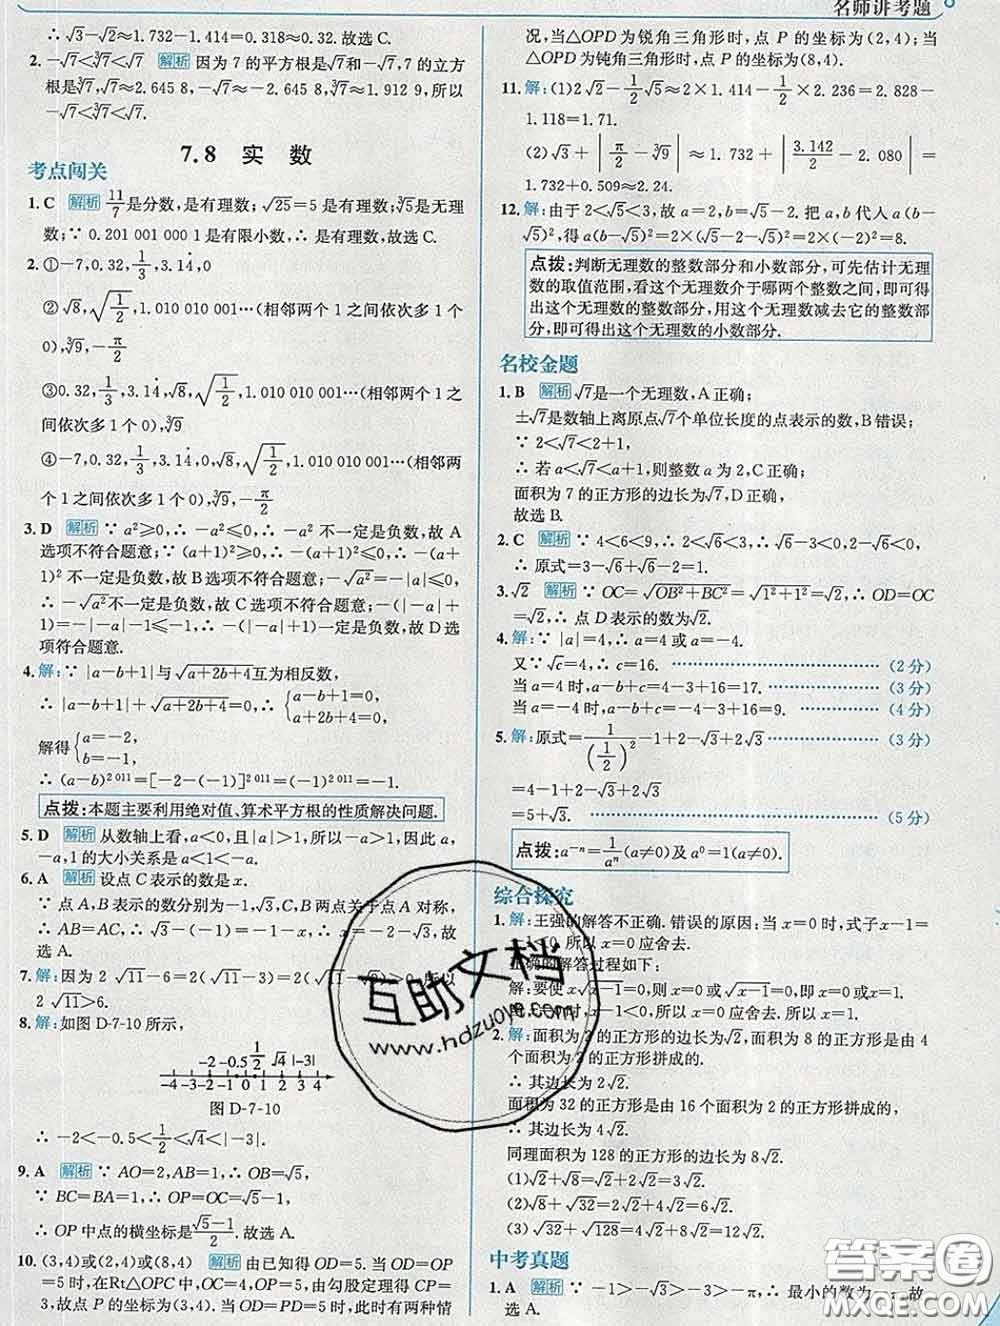 名师讲考题
∴ √3-√2≈1.732-1.414=0.318≈0.32.故选C.
2. -√7<∛7<√7 解析 因为7的平方根是√7和-√7,7的立方
根是∛7,-√7≈-2.645 8,√7≈2.645 8,∛7≈1.912 9,所以
-√7<∛7<√7.
7.8 实 数
考点闯关
1. C 解析 11/7是分数,是有理数;√25=5是有理数;∛5是无理
数;∵ 0.201 001 000 1是有限小数,∴是有理数,故选C.
2. ①-7,0.32,1/3,3.14̇,0
②√8,√(1/2),1.010 010 001…(相邻两个1之间依次多1个
0),∛9,-π/2
③0.32,1/3,3.14̇,√8,√(1/2),1.010 010 001…(相邻两个1之
间依次多1个0),∛9
④-7,0.32,1/3,3.14̇,0,√8,√(1/2),1.010 010 001…(相邻两
个1之间依次多1个0),∛9,-π/2
3. D 解析 ∵ a²≥0,∴ -a²≤0,∴ -a² 不一定是负数,故A
选项不符合题意;∵ (a+1)²≥0,∴ -(a+1)²≤0,∴ -(a+
1)² 不一定是负数,故B选项不符合题意;∵ -√a²=-|a|≤0,
∴ -√a²不一定是负数,故C选项不符合题意;-(|-a|+
1)=-|-a|-1≤-1,∴ -(|-a|+1)一定是负数,故D选
项符合题意.
4. 解:∵ |a-b+1|与√(a+2b+4)互为相反数,
∴ |a-b+1|+√(a+2b+4)=0,∴ {a-b+1=0, a+2b+4=0,
解得{a=-2, b=-1,
∴ (a-b)²⁰¹¹=[-2-(-1)]²⁰¹¹=(-1)²⁰¹¹=-1.
点拨:本题主要利用绝对值、算术平方根的性质解决问题.
5. D 解析 从数轴上看,a<0,且|a|>1,所以-a>1,因此a,
-a,1的大小关系是a<1<-a.
6. A 解析 设点C表示的数是x.
∵ 点A,B表示的数分别为-1,√3,C,B两点关于点A对称,
∴ AB=AC,∴ -1-x=√3-(-1),∴ x=-2-√3,故
选A.
7. 解:因为2 √11-6=2(√11-3)=2(√11-√9)>0,所以
2 √11>6.
8. 解:如图D-7-10所示,
-2 -0.5 1/2 √4 |-3|
-4 -3 -2 -1 0 1 2 3 4
图D-7-10
∴ -2<-0.5<1/2<√4<|-3|.
9. A 解析 ∵ AO=2,AB=1,∴ OB=√5,
∵ BC=BA=1,∴ OP=OC=√5-1,
∴ OP中点的横坐标是(√5-1)/2.故选A.
10. (3,4)或(2,4)或(8,4) 解析 由已知得OD=5.当OP=
OD=5时,在Rt△OPC中,OC=4,由勾股定理得CP=
3,故点P的坐标为(3,4).当OD=PD=5时,此时有两种情
况,当△OPD为锐角三角形时,点P的坐标为(2,4);当
△OPD为钝角三角形时,点P的坐标为(8,4).
11. 解:(1)2√2-1/2√5≈2×1.414-1/2×2.236=2.828-
1.118=1.71.
(2)√3+|π/2-∛9|≈1.732+|3.142/2-2.080|=
1.732+0.509≈2.24.
12. 解:由于2<√5<3,故a=2,b=√5-2.把a,b代入a(b-
√5)²,得a(b-√5)²=2×(√5-2-√5)²=2×(-2)²=8.
点拨:判断无理数的整数部分和小数部分,可先估计无理
数的取值范围,看这个无理数介于哪两个整数之间,即可得
出这个无理数的整数部分,用这个无理数减去它的整数部
分,即可得出这个无理数的小数部分.
名校金题
1. B 解析 √7是一个无理数,A正确;
±√7是数轴上离原点√7个单位长度的点表示的数,B错误;
∵ 2<√7<2+1,
∴ 若a<√7<a+1,则整数a为2,C正确;
面积为7的正方形的边长为√7,D正确,
故选B.
2. C 解析 ∵ 4<6<9,∴ 2<√6<3,∴ √6-3<0,2-√6<0,
∴ 原式=3-√6+√6-2=1.
3. √2 解析 ∵ OC=√(OB²+BC²)=√(1²+1²)=√2,∴ OD=OC
=√2,∴ 点D表示的数为√2.
4. 解:∵ |a|=4,∴ a=4或a=-4.
又∵ √c=4,∴ c=16. (2分)
当a=4时,a-b+c=4-3+16=17. (3分)
当a=-4时,a-b+c=-4-3+16=9. (4分)
5. 解:原式=1/(1/2)²-1+2-√3+2√3 (3分)
=4-1+2-√3+2√3
=5+√3. (5分)
点拨:a⁻ⁿ=1/aⁿ(a≠0)及a⁰=1(a≠0).
综合探究
1. 解:王强的解答不正确.错误的原因:当x=0时,式子x-1=
-1<0,所以x=0应舍去.
正确的解答过程如下:
解:要使x√(x-1)=0,则x=0或√(x-1)=0,即x=0或x=1.
x-1<0,所以x=0应舍去.所以x=1.
2. 解:面积为2的正方形的边长为√2,面积为8的正方形是由4
个面积为2的正方形拼成的.
∴ 其边长为2√2.
面积为32的正方形是由16个面积为2的正方形拼成的,
∴ 其边长为4√2.
同理面积为128的正方形的边长为8√2.
(1)√2+√8=√2+2√2=3√2.
(2)√8+√32=2√2+4√2=6√2.
(3)√32+√128=4√2+8√2=12√2.
中考真题
1. A 解析 ∵ -1>-√3>-3>-π,∴ 最小的数为-π.故
选A.
互助文档
www.hdzuoye.com
答案圈
MXQE.COM